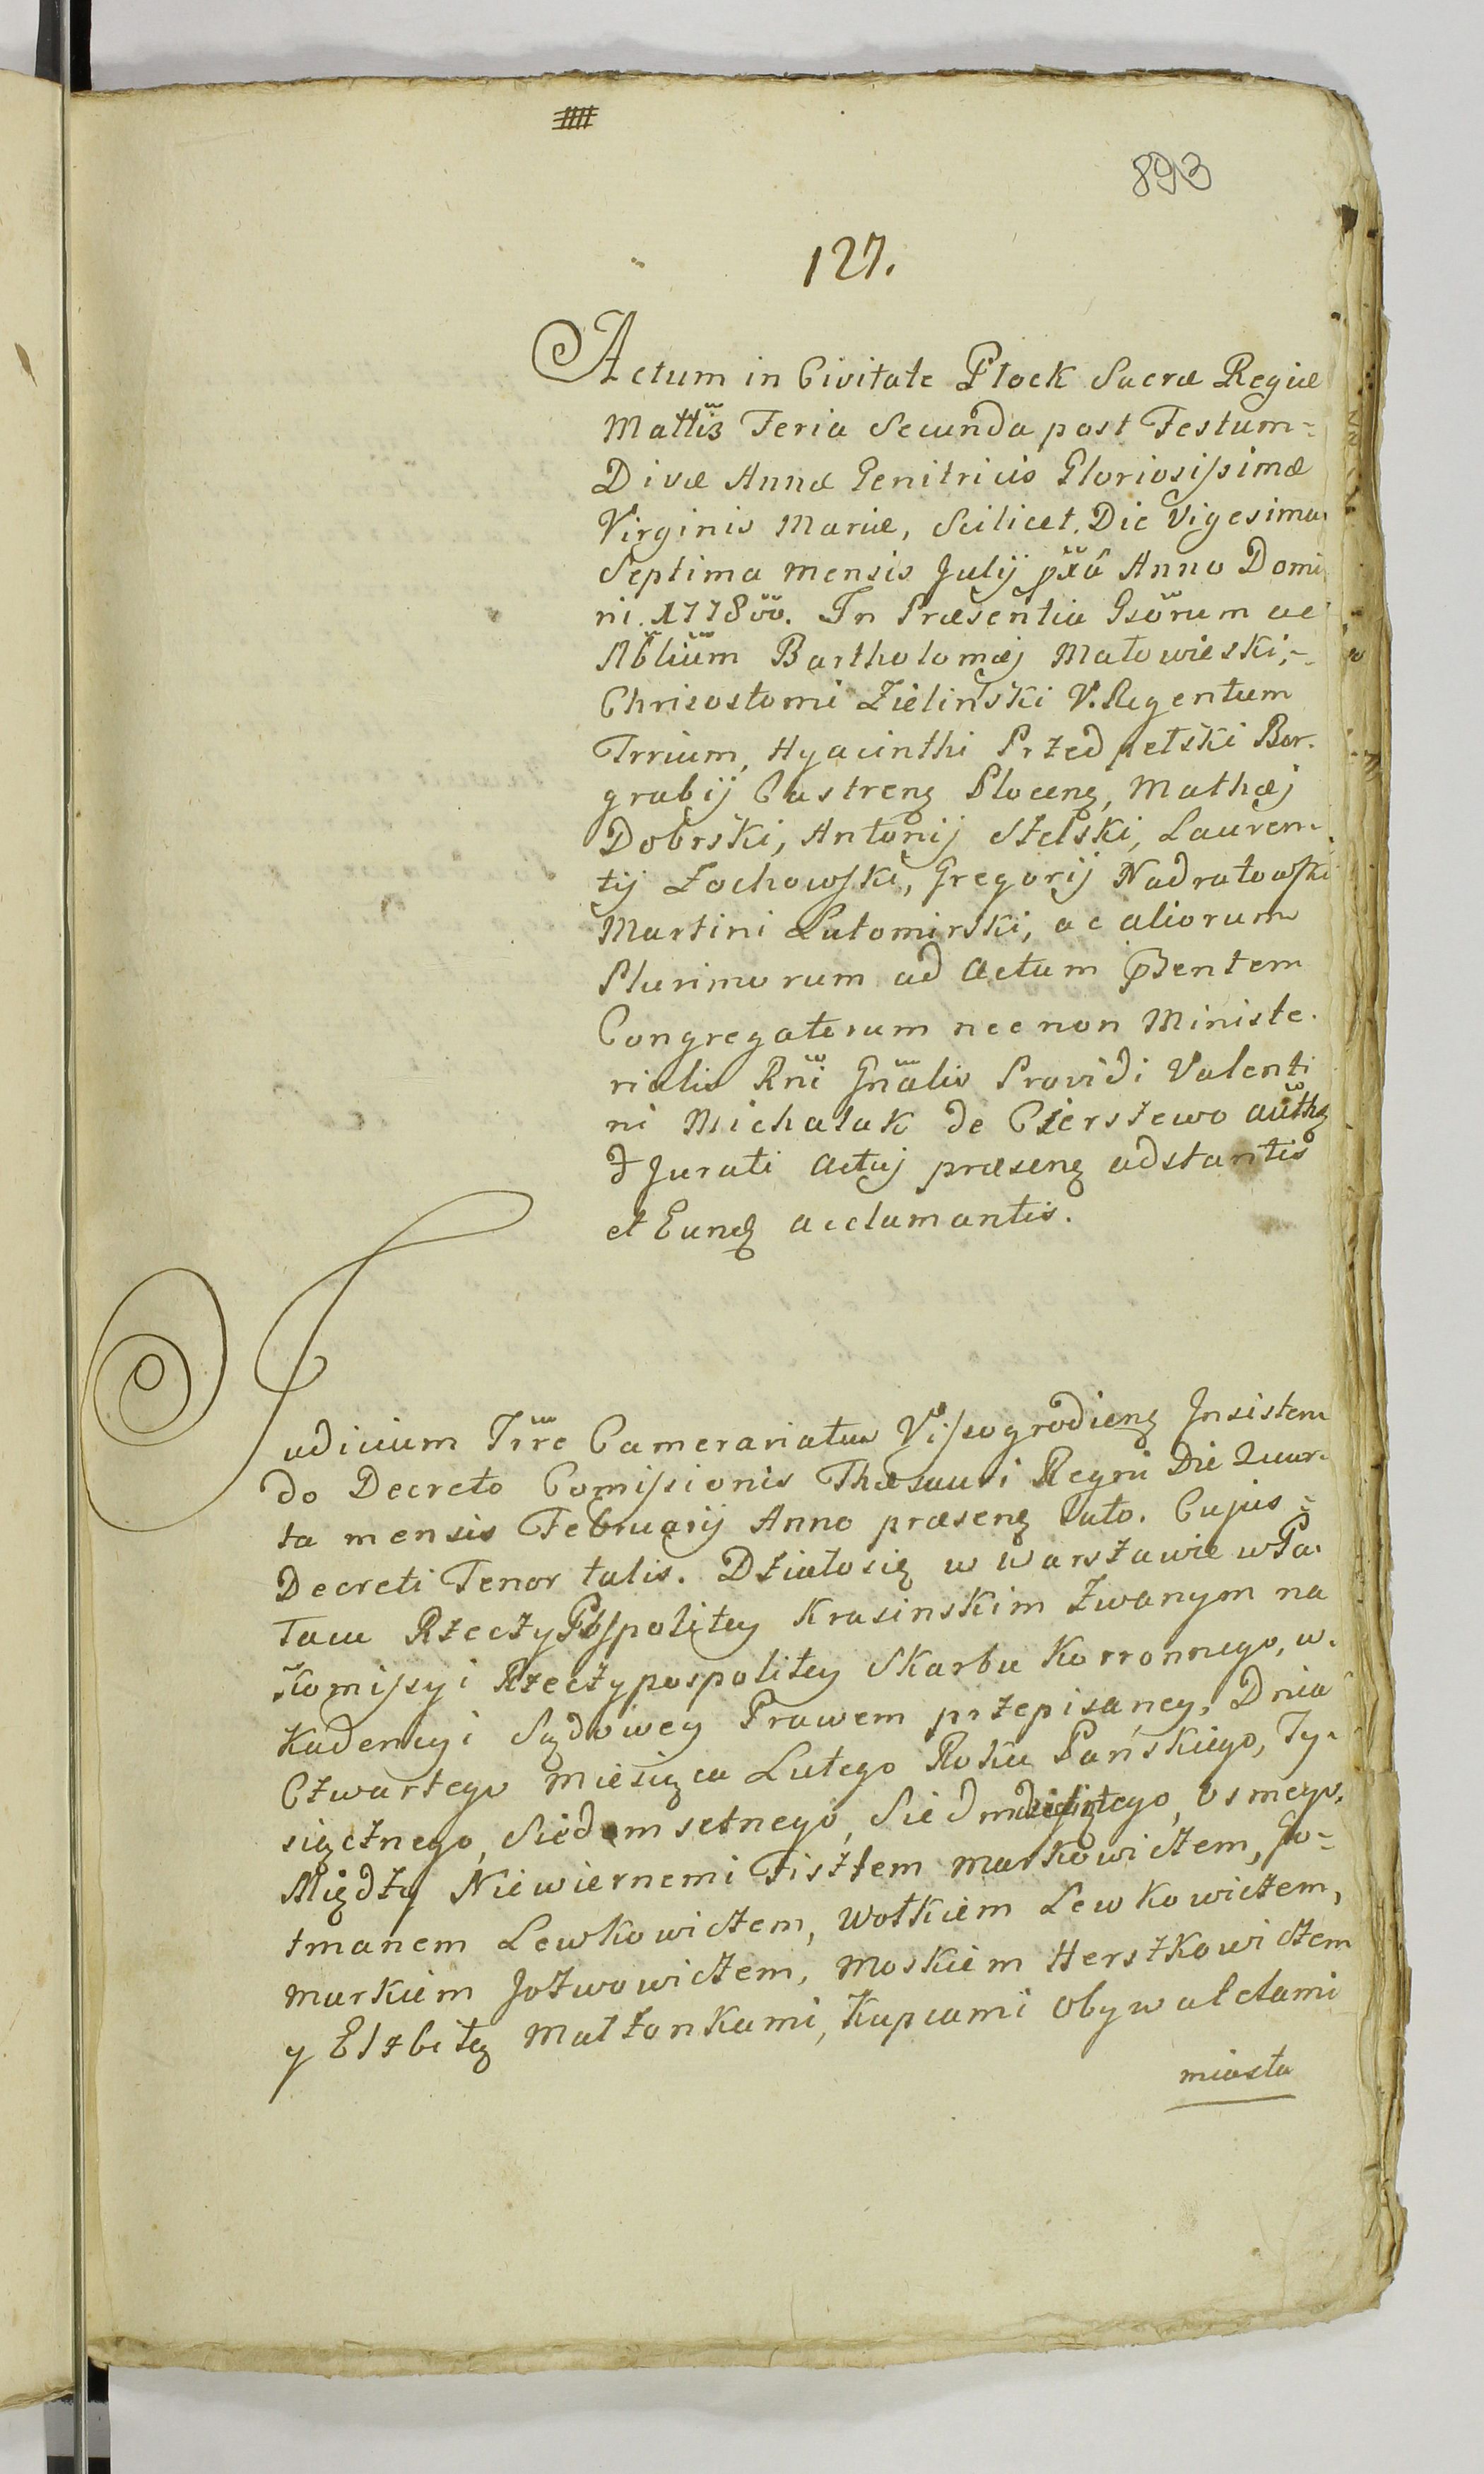 893
127.
Actum in Civitate Płock Sacræ Regiæ
Mattis Feria Secunda post Festum=
Divæ Annæ Genitricis Gloriosissimæ
Virginis Mariæ, Scilicet. Die Vigesima
Septima mensis Julij pxa Anno Domi
ni. 1778vo. In Præsentia Gsorum ac
Nblium Bartholomæj Małowieski,-
Chrisostomi Zielinski V. Regentum
Trrium, Hyacinthi Przedpełski Bur.
grabij Castrenȩ Plocenȩ, Mathæj
Dobrski, Antonij Szelski, Lauren-
tij Żochowski, Gregorij Nadratowski
Martini Lutomirski, ac aliorum
Plurimorum ad Actum psentem
Congregatorum nec non Ministe.
rialis Rni Gnalis Providi Valenti
ni Michalak de Cierszewo authȩ
& Jurati Actuj præsenȩ adstantis
et Eundȩ acclamantis.
Judicium Trre Camerariatus Vissogrodienȩ Insisten-
do Decreto Comissionis Thesauri Regni Die Quar-
ta mensis Februarij Anno præsenȩ Lato. Cujus=
Decreti Tenor talis. Działosię w Warszawie w Pa-
łacu RzeczyPosspolitey Krasinskim Zwanym na
Komissyi Rzeczypospolitey Skarbu Korronnego, w.
Kadencyi Sądowey Prawem przepisaney, Dnia
Czwartego Miesiąca Lutego Roku Pańskiego, Ty-
siącznego, Siedmsetnego, Siedmdziesiątego, osmego.
Między Niewiernemi Fiszlem Markowiczem, Jo=
zmanem Lewkowiczem, Wolkiem Lewkowiczem,
Markiem Jozwowiczem, Moskiem Herszkowiczem
y Elzbitą Małżonkami, Kupcami Obywatelami
miasta